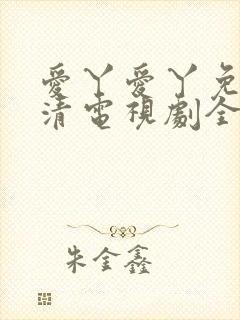 愛丫愛丫免
清電視劇全
朱金鑫